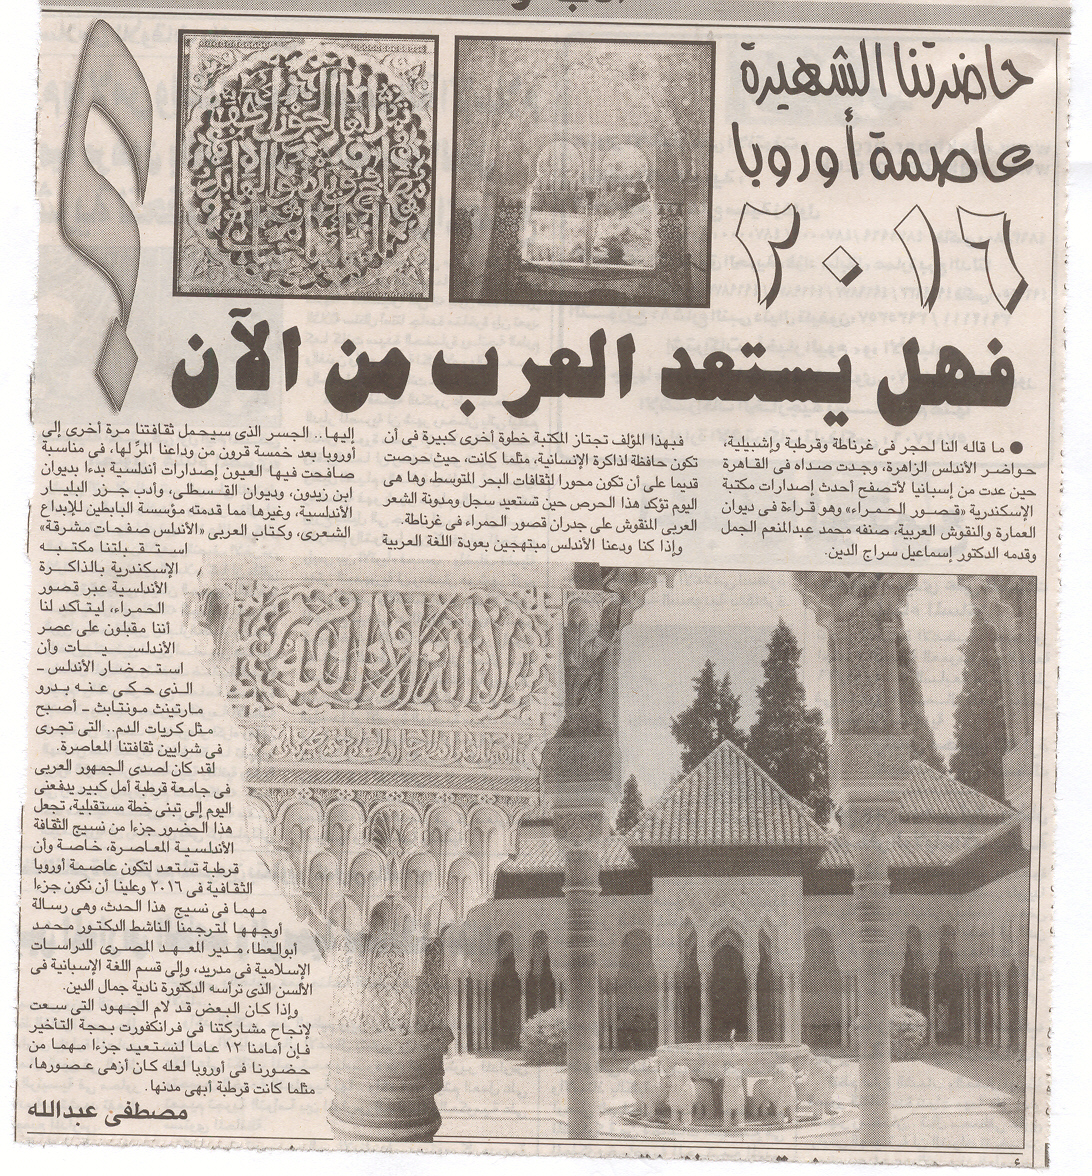 حاضرتنا الشهيرة
عاصمة أوروبا
٢٠١٦
فهل يستعد العرب من الآن
؟
● ما قاله النا لحجر فى غرناطة وقرطبة وإشبيلية،
حواضر الأندلس الزاهرة، وجدت صداه فى القاهرة
حين عدت من إسبانيا لأتصفح أحدث إصدارات مكتبة
الإسكندرية «قصور الحمراء» وهو قراءة فى ديوان
العمارة والنقوش العربية، صنفه محمد عبدالمنعم الجمل
وقدمه الدكتور إسماعيل سراج الدين.
فبهذا المؤلف تجتاز المكتبة خطوة أخرى كبيرة فى أن
تكون حافظة لذاكرة الإنسانية، مثلما كانت، حيث حرصت
قديما على أن تكون محورا لثقافات البحر المتوسط، وها هى
اليوم تؤكد هذا الحرص حين تستعيد سجل ومدونة الشعر
العربى المنقوش على جدران قصور الحمراء فى غرناطة.
وإذا كنا ودعنا الأندلس مبتهجين بعودة اللغة العربية
إليها.. الجسر الذى سيحمل ثقافتنا مرة أخرى إلى
أوروبا بعد خمسة قرون من وداعنا المرِّلها، فى مناسبة
صافحت فيها العيون إصدارات أندلسية بدءا بديوان
ابن زيدون، وديوان القسطلى، وأدب جزر البليار
الأندلسية، وغيرها مما قدمته مؤسسة البابطين للإبداع
الشعرى، وكتاب العربى «الأندلس صفحات مشرقة»
استقبلتنا مكتبه
الإسكندرية بالذاكرة
الأندلسية عبر قصور
الحمراء، ليتأكد لنا
أننا مقبلون على عصر
الأندلسيات وأن
استحضار الأندلس ـ
الذى حكى عنه بدرو
مارتينث مونتابث ـ أصبح
مثل كريات الدم.. التى تجرى
فى شرايين ثقافتنا المعاصرة.
لقد كان لصدى الجمهور العربى
فى جامعة قرطبة أمل كبير يدفعنى
اليوم إلى تبنى خطة مستقبلية، تجعل
هذا الحضور جزءا من نسيج الثقافة
الأندلسية المعاصرة، خاصة وأن
قرطبة تستعد لتكون عاصمة أوروبا
الثقافية فى ٢٠١٦ وعلينا أن نكون جزءا
مهما فى نسيج هذا الحدث، وهى رسالة
أوجهها لمترجمنا الناشط الدكتور محمد
أبوالعطا، مدير المعهد المصرى للدراسات
الإسلامية فى مدريد، وإلى قسم اللغة الإسبانية فى
الألسن الذى ترأسه الدكتورة نادية جمال الدين.
وإذا كان البعض قد لام الجهود التى سعت
لإنجاح مشاركتنا فى فرانكفورت بحجة التأخير
فإن أمامنا ١٢ عاما لنستعيد جزءا مهما من
حضورنا فى أوروبا لعله كان أزهى عصورها،
مثلما كانت قرطبة أبهى مدنها.
مصطفى عبدالله